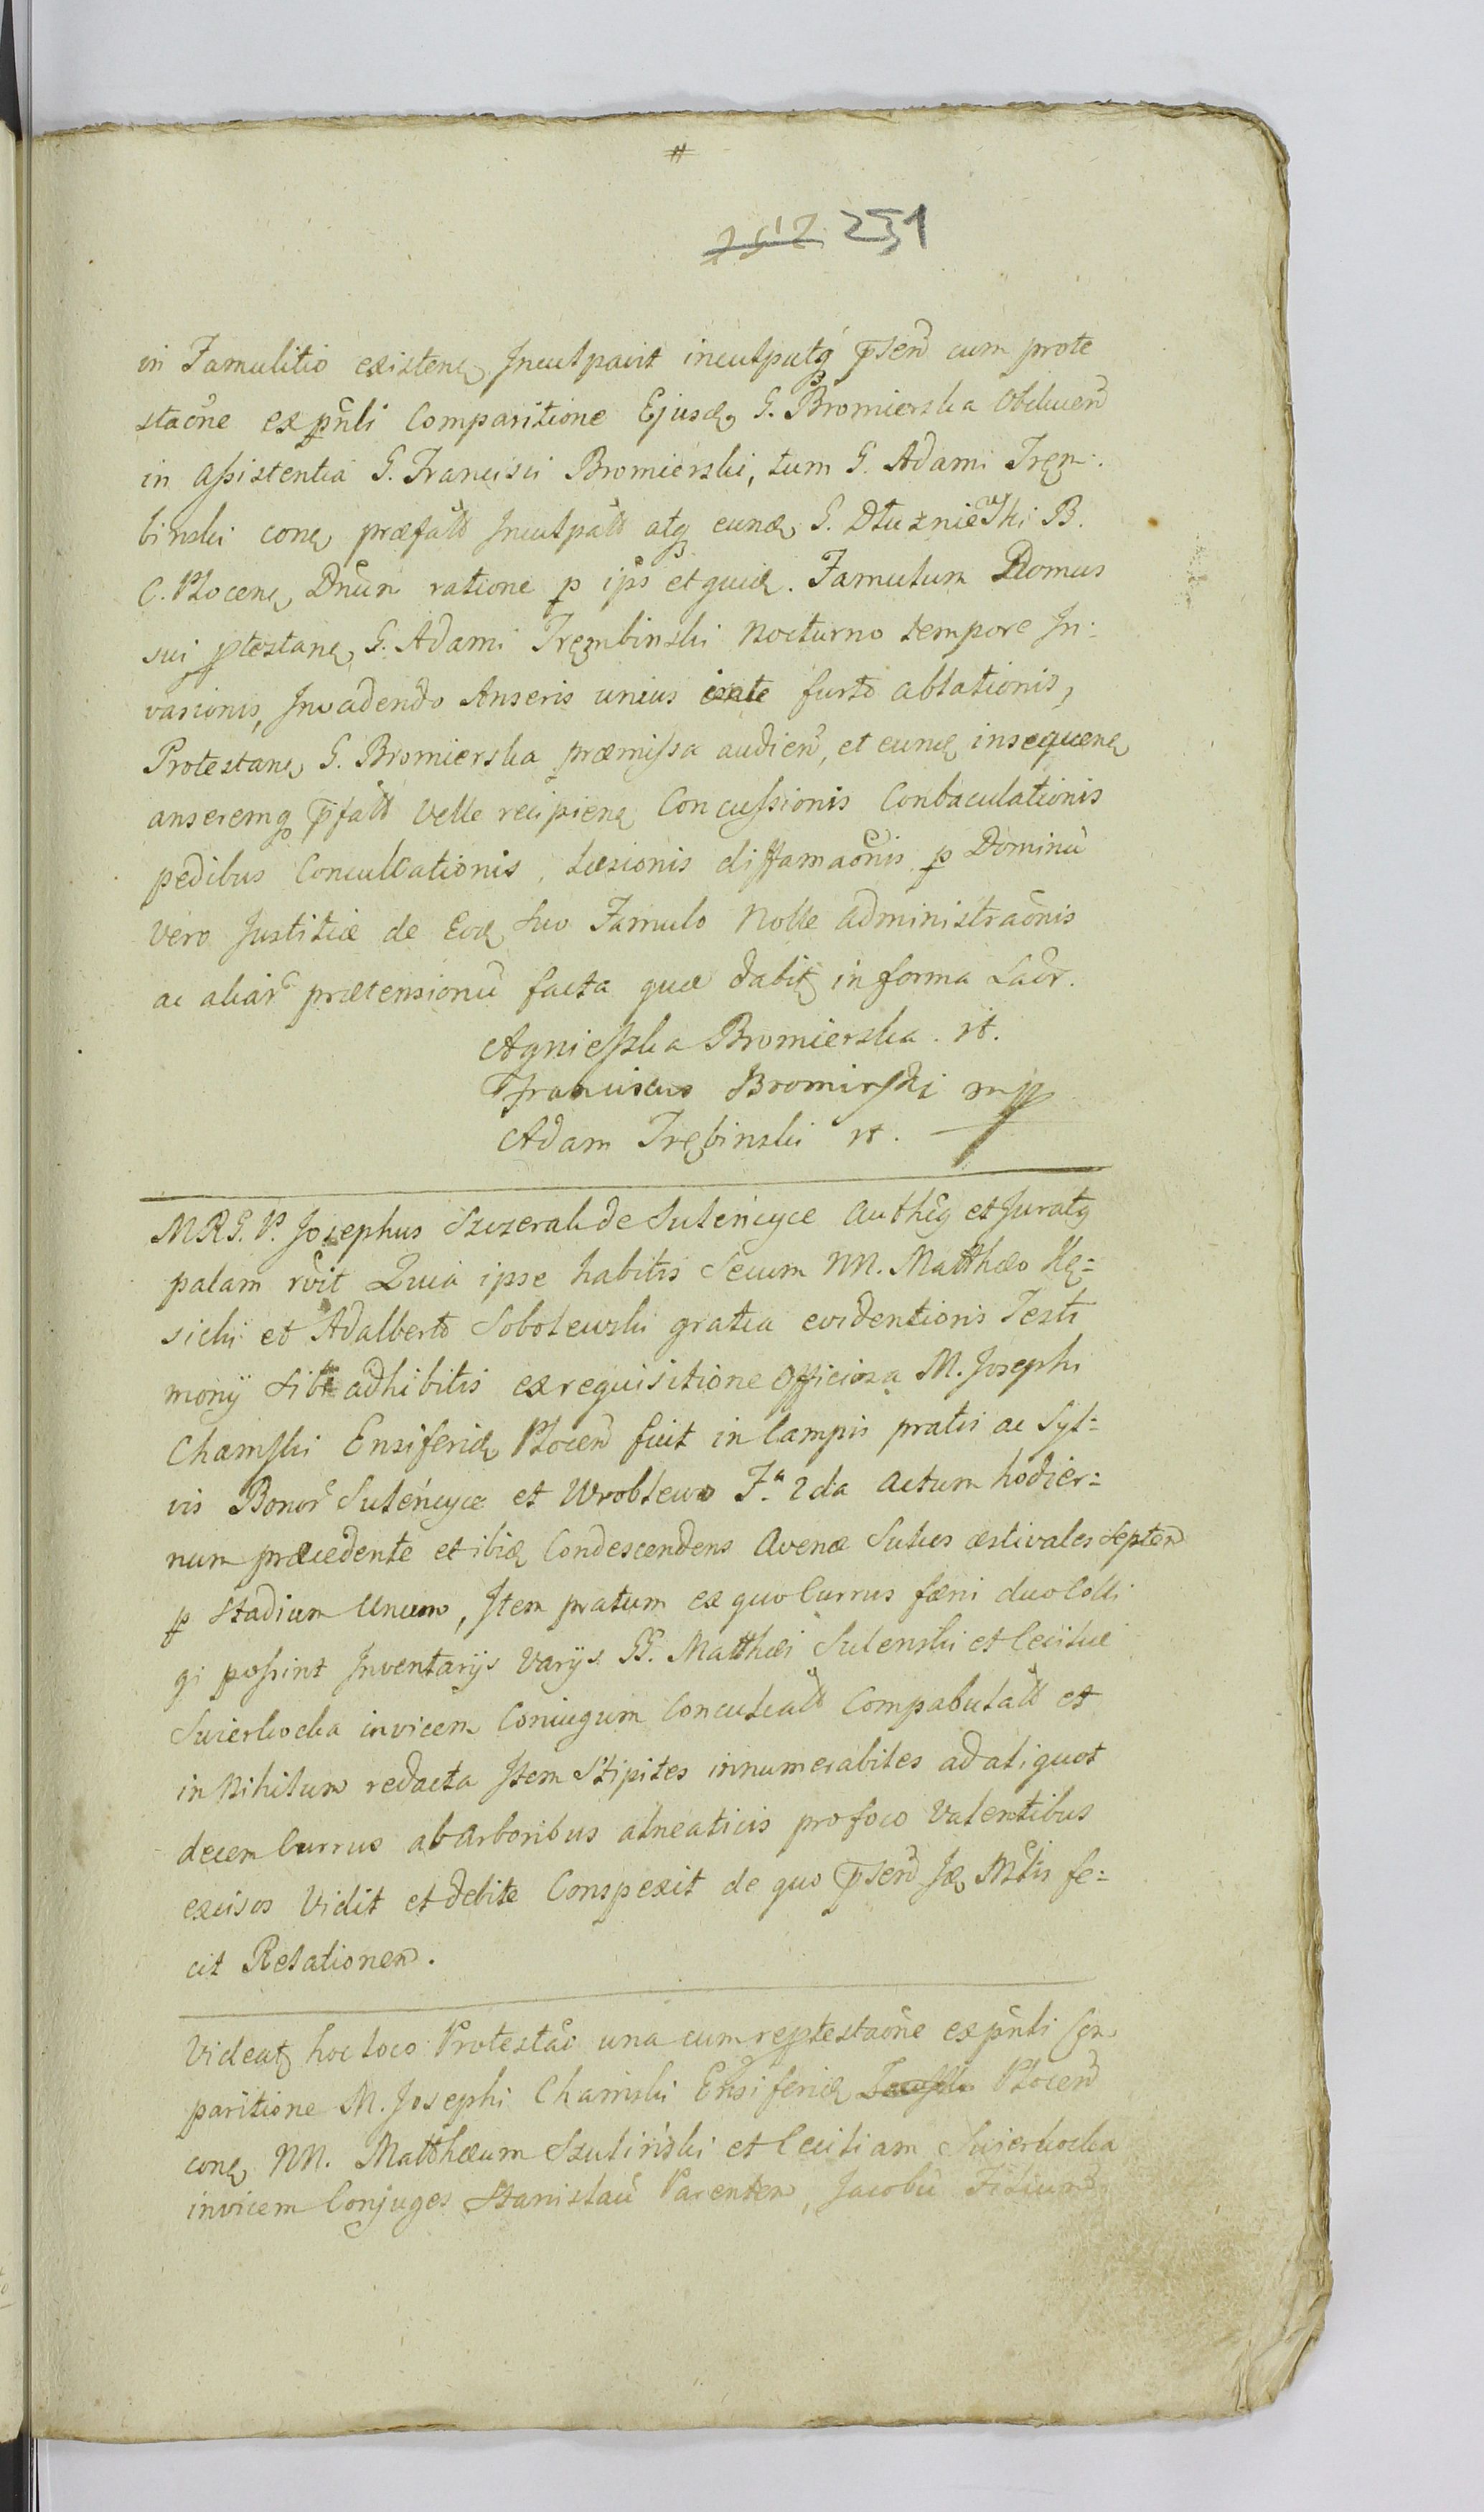 #
252 251
in Famulitio existenę Inculpavit inculpatꝗ pꝛsen̄ cum prote
staōne ex pn̄li Comparitione Ejusdꝫ G. Bromierska Obducen̄
in assistentia G. Francisci Bromierski, tum G. Adami Tręm:
binski contꝫ præfatt Inculpatt atꝗ eundꝫ G. Dłużniewski B.
C. Plocenę Dn̄um ratione p ips et quidꝫ. Famulum Domus
sui ptestanę G. Adami Tręmbinski Nocturno tempore In:
vasionis, Invadendo Anseris unius furto ablationis,
Protestanę G. Bromierska præmissa audien̄, et eundꝫ insequenę
anseremꝗ pfatt Velle recipienę Concussionis Conbaculationis
pedibus Conculcationis, Læsionis diffamaōnis p Dominū
vero Justitiæ de Eodꝫ Suo Famulo Nolle administraōnis
ac aliar prætensionū facta quæ dabitꝫ in forma Lacr.
Agnieszka Bromierska. rt.
Franciscus Bromirski mpp
Adam Trębinski rt.
MRG. P. Josephus Szczerał de Sulencyce Authēꝗ et Juratꝗ
palam rōit Quia ipse habitis Secum NN. Matthæo Kę=
sicki et Adalberto Sobolewski gratia evidentioris Testi
monÿ Sibi adhibitis ex requisitione Officiosa M. Josephi
Chamski Ensiferidꝫ Plocen̄ fuit in Campis pratis ac Syl=
vis Bonor Sulencyce et Wroblewo Fa. 2da Actum hodier=
num præcedente et ibidꝫ Condescendens Avenæ Sulcos æstivales Septem
p Stadium Unum, Item pratum ex quo Currus fæni duo Colli
gi possint Inventarijs Varijs GG. Matthæi Sulenski et Ceciliæ
Swierkocka invicem Coniugum Conculcatt Compabulatt et
in Nihilum redacta Item Stipites innumerabiles ad aliquot
decem Currus ab Arboribus alneaticis pro foco Valentibus
excisos Vidit et debite Conspexit de quo pꝛsen̄ Jꝫ Mtis fe=
cit Relationem.
Videatꝫ hoc loco Protestāo una cum reptestaōne ex pn̄li Con
paritione M. Josephi Chamski Ensiferidꝫ Plocen̄
contꝫ NN. Matthæum Szulinski et Ceciliam Swierkocka
invicem Conjuges Stanislaū Parentem, Jacobū Filium